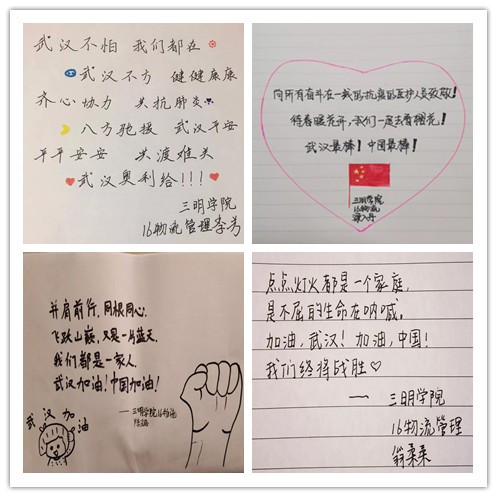 武汉不怕 我们都在
武汉不方 健健康康
齐心协力 共抗肺炎
八方驰援 武汉平安
平平安安 共渡难关
武汉奥利给!!!
三明学院
16物流管理李芳
向所有奋斗在一线的抗病的医护人员致敬!
待春暖花开,我们一起去看樱花!
武汉最棒!中国最棒!
三明学院
16物流
并肩前行,同根同心.
飞跃山巅,又是一片蓝天.
我们都是一家人.
武汉加油!中国加油!
——三明学院16物流
武汉加油
点点灯火都是一个家庭,
是不屈的生命在呐喊。
加油,武汉!加油,中国!
我们终将战胜♡
—— 三明学院
16物流管理
翁柔柔